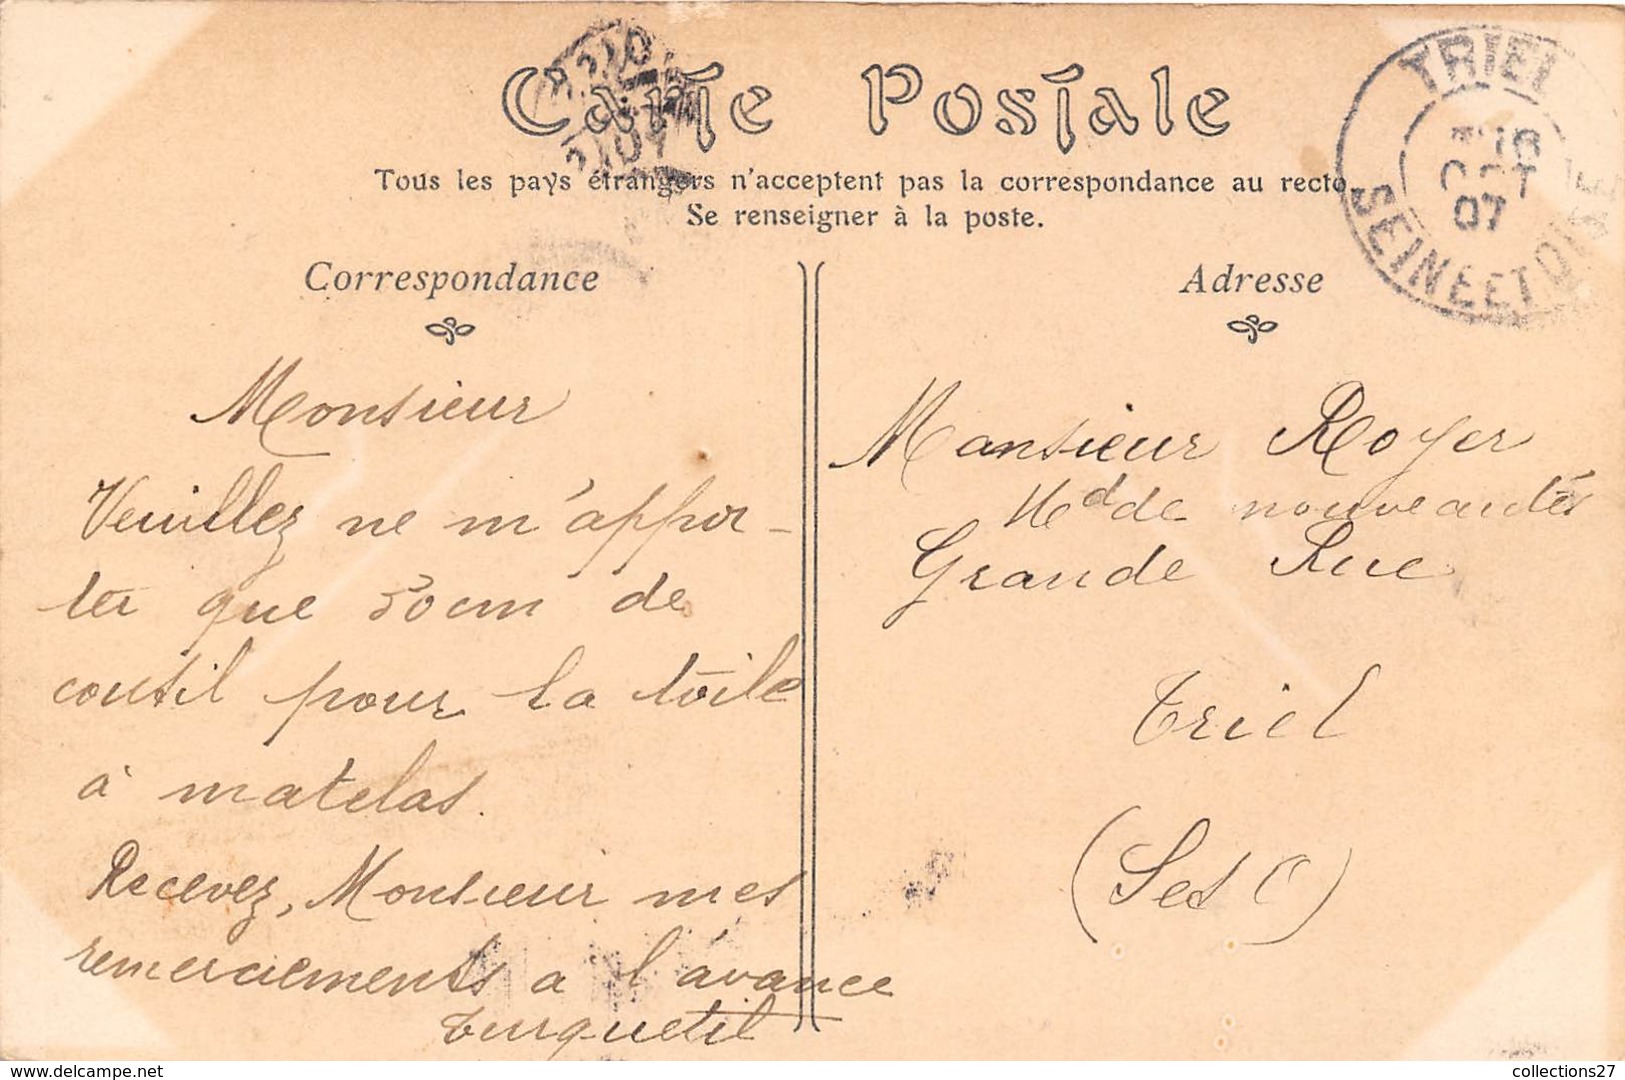 Carte Postale
Tous les pays étrangers n'acceptent pas la correspondance au recto.
Se renseigner à la poste.
TRIEL
SEINE ET OISE
OCT
07
Correspondance
Monsieur
Veuillez ne m'appor-
ter que 50 cm de
coutil pour la toile
à matelas.
Recevez, Monsieur mes
remerciements a l'avance
Turquetil
Adresse
Monsieur Royer
Md de nouveautés
Grande Rue
Triel
(S et O)
delcampe.net
collections27